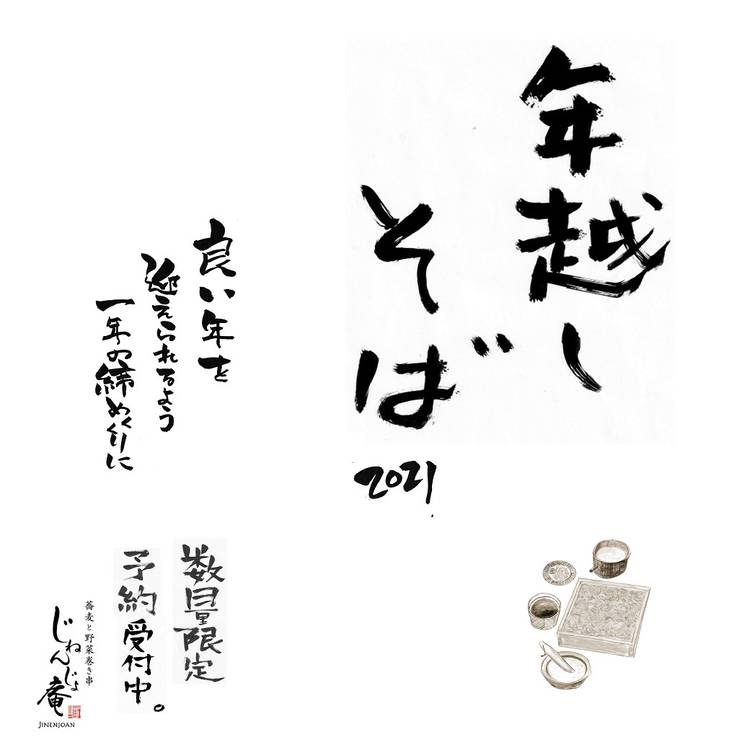 年越し
そば
2021
良い年を
迎えられるよう
一年の締めくくりに
数量限定
予約受付中。
蕎麦と野菜巻き串
じねんじょ庵
JINENJOAN